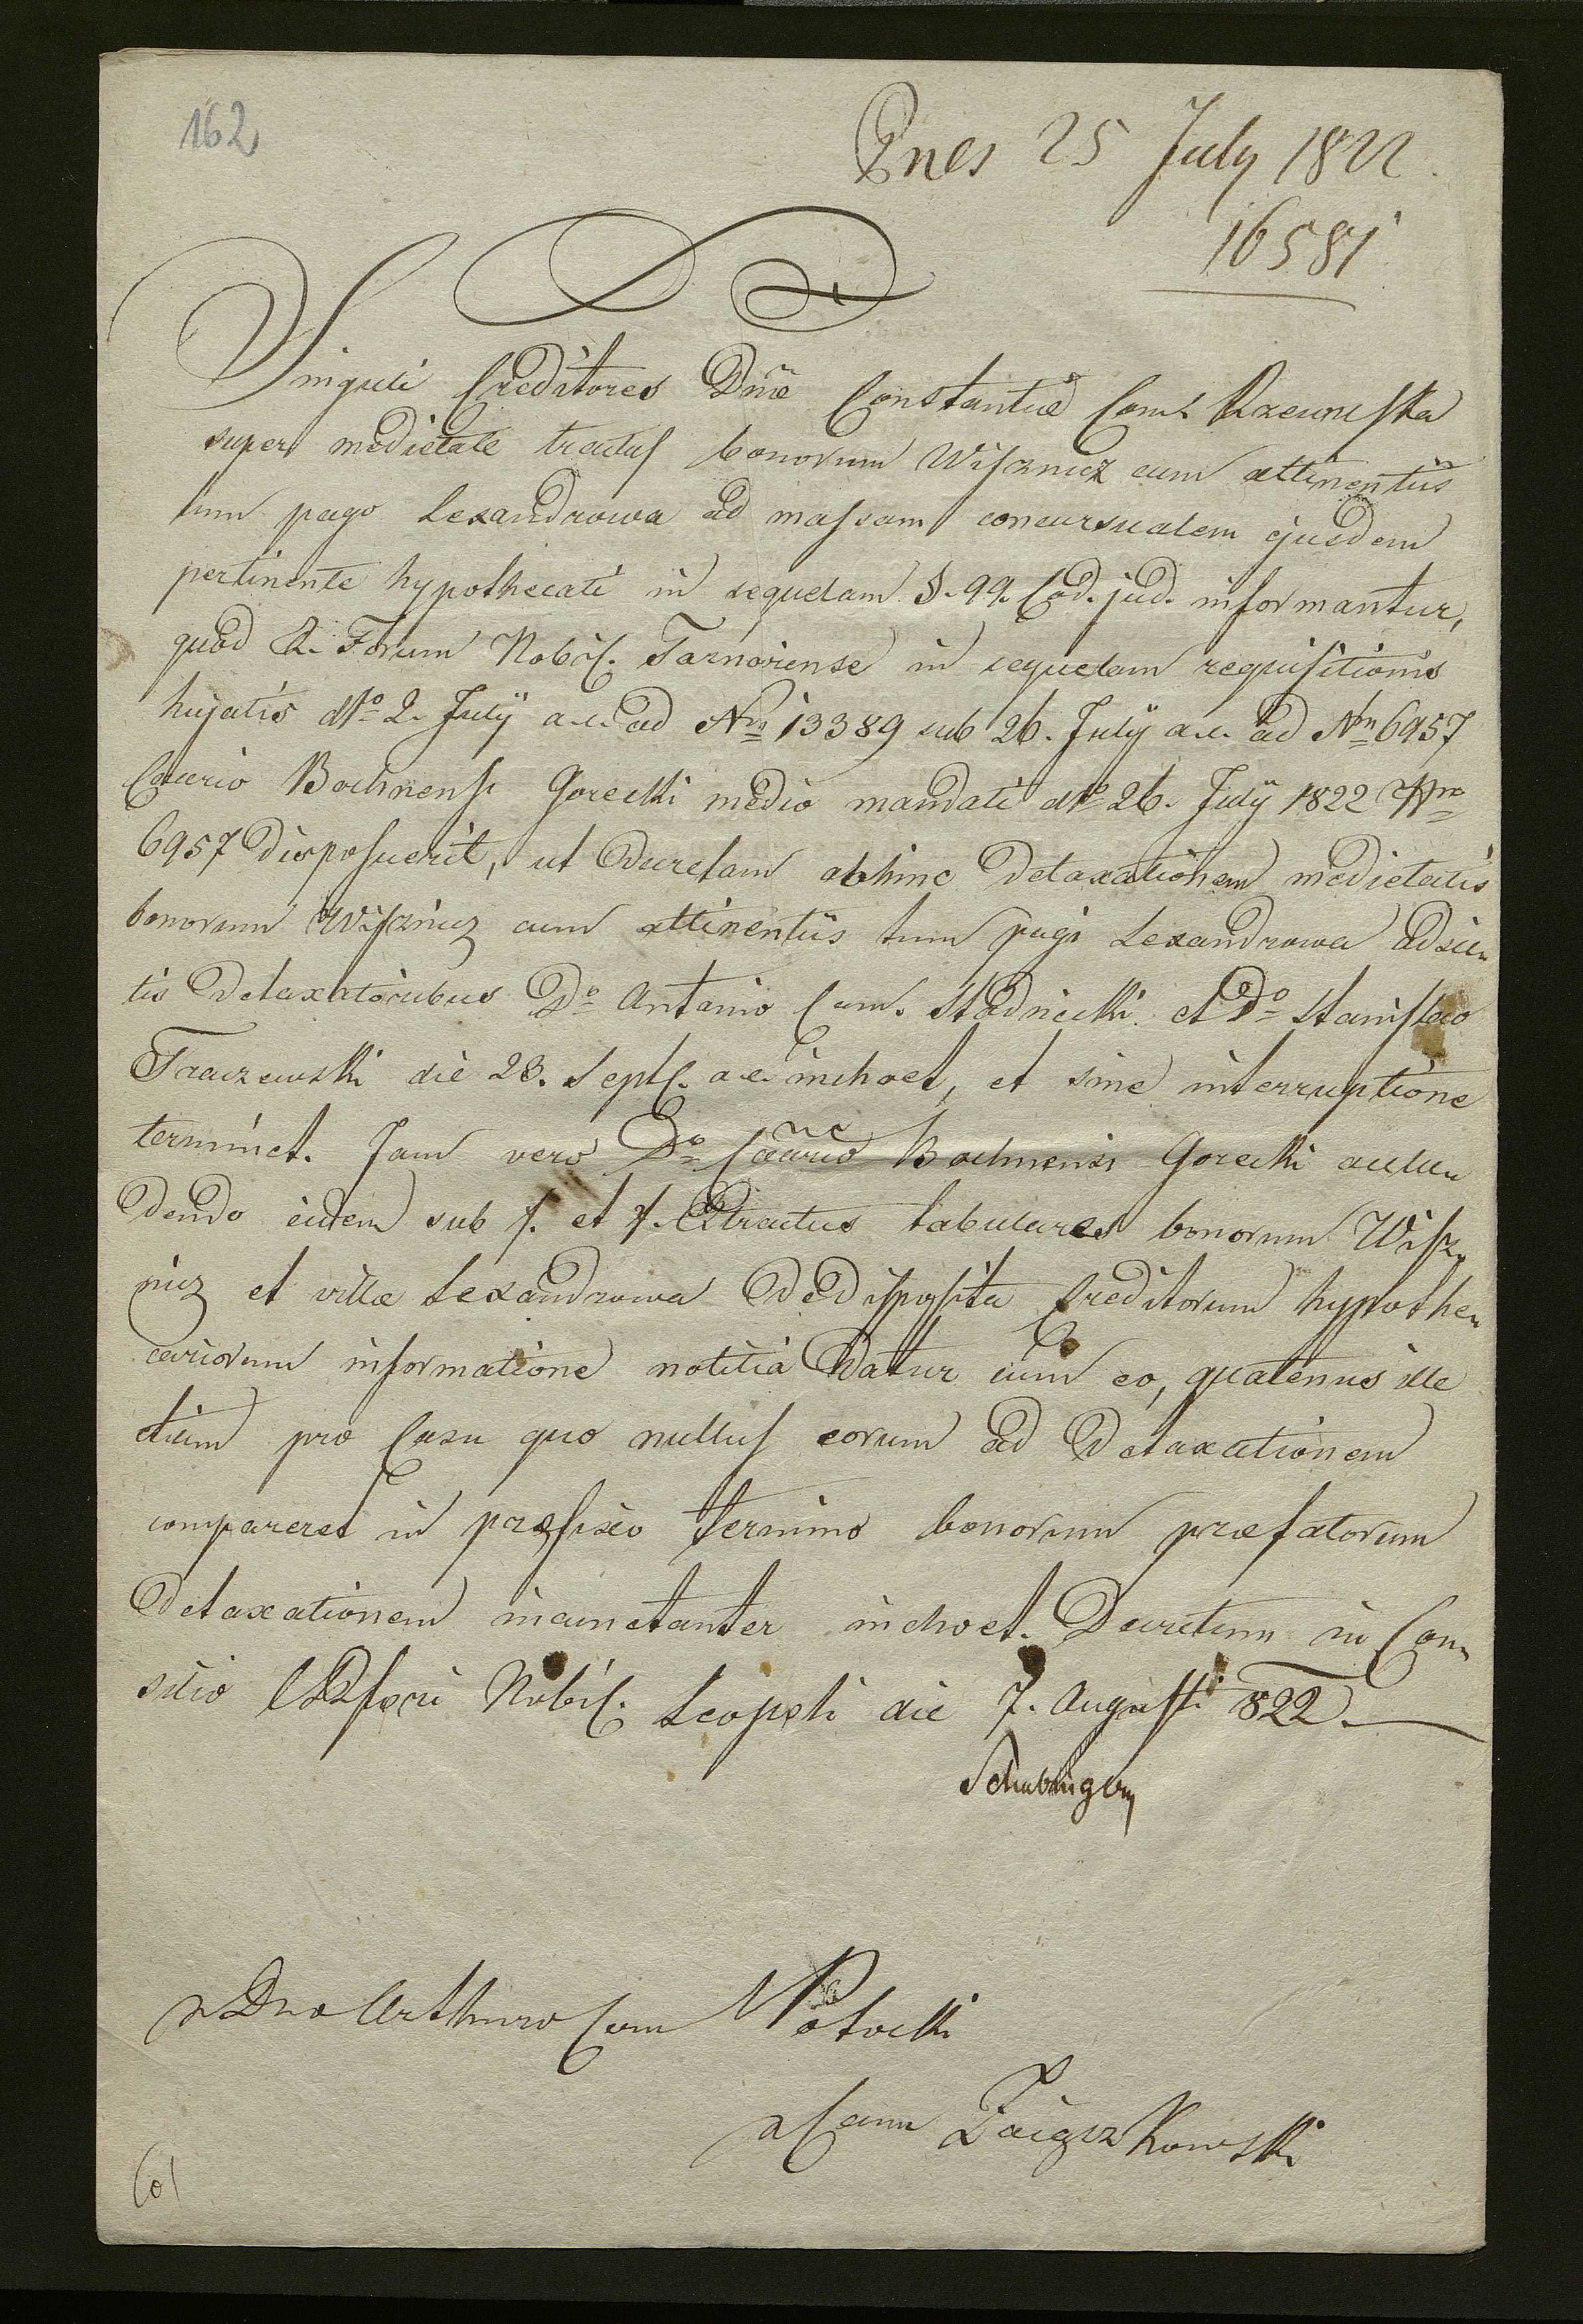 162
Pnes 25 July 1822.
16581
Singuli Creditores Dnæ Constantiæ Com. Rzewuska
super medietate tractus bonorum Wisznicz cum attinentiis
tum pago Lexandrowa ad massam concursualem ejusdem
pertinente hypothecati in sequelam §. 99. Cod. jud. informantur,
quod C. R. Forum Nobil. Tarnoviense in sequelam requisitionis
hujatis dto 2. July a. c. ad Nrm 13389 sub 26. July a. c. ad Nrm 6957
Caerio Bochnensi Gorecki medio mandati dto 26. July 1822 Nro
6957 disposuerit, ut decretam abhinc detaxationem medietatis
bonorum Wisznicz cum attinentiis tum pagi Lexandrowa adsci-
tis Detaxatoribus Do Antonio Com. Stadnicki et Do Stanislao
Traczewski die 23. Septb. a. c. inchoet, et sine interruptione
terminet. Jam vero Do Caerio Bochnensi Gorecki acclu-
dendo eidem sub /. et //. Extractus tabulares bonorum Wisz-
nicz et villæ Lexandrowa de disposita Creditorum hypothe-
cariorum informatione notitia datur cum eo, quatenus ille
etiam pro Casu quo nullus eorum ad Detaxationem
compareret in præfixo termino bonorum præfatorum
Detaxationem incunctanter inchoet. Decretum in Con-
silio CR fori Nobil. Leopoli die 7. Augusti 822.
Dno Arthuro Com Potocki